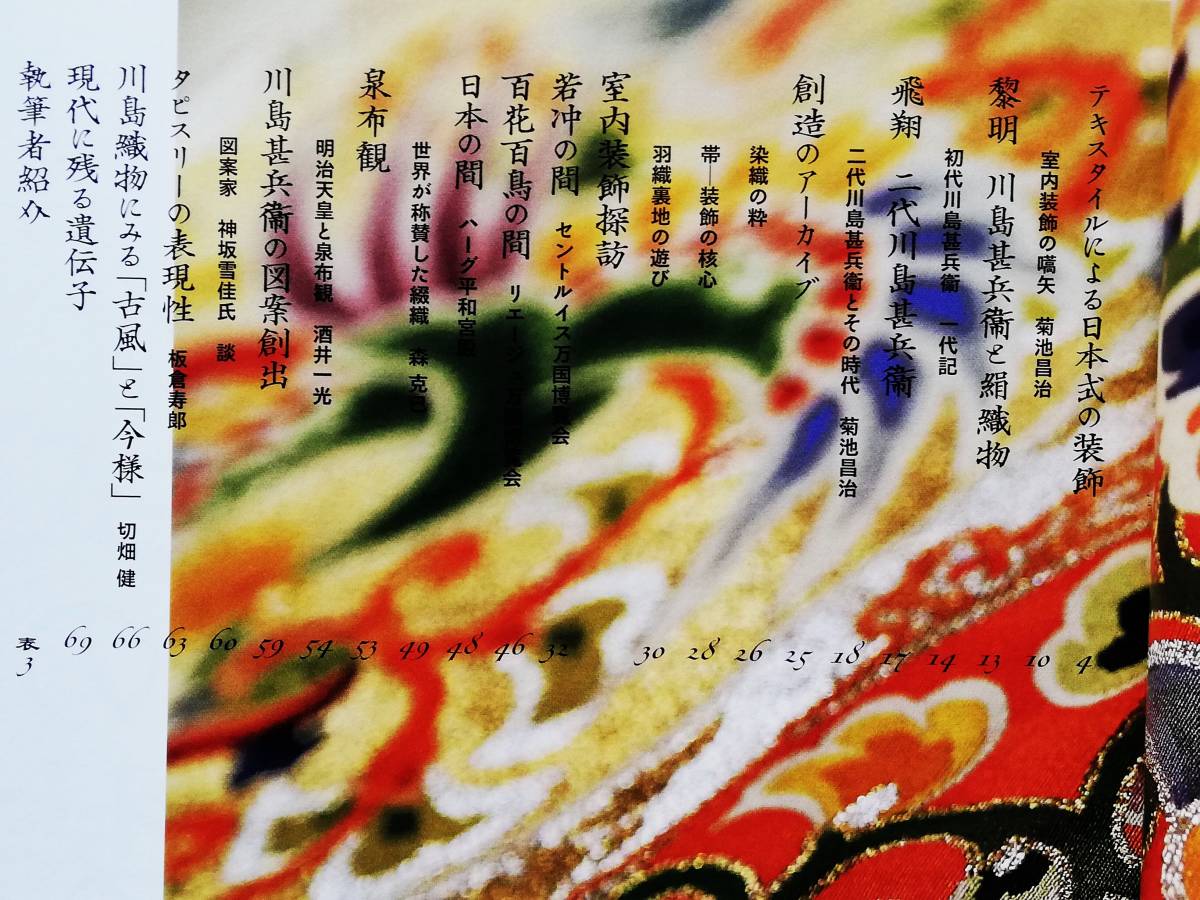 テキスタイルによる日本式の装飾 4
室内装飾の嚆矢 菊池昌治 10
黎明 川島甚兵衞と絹織物 13
初代川島甚兵衞 一代記 14
飛翔 二代川島甚兵衞 17
二代川島甚兵衞とその時代 菊池昌治 18
創造のアーカイブ 25
染織の粋 26
帯―装飾の核心 28
羽織裏地の遊び 30
室内装飾探訪
若冲の間 セントルイス万国博覧会 32
百花百鳥の間 リエージュ万国博覧会 46
日本の間 ハーグ平和宮殿 48
世界が称賛した綴織 森克己 49
泉布観 53
明治天皇と泉布観 酒井一光 54
川島甚兵衞の図案創出 59
図案家 神坂雪佳氏 談 60
タピスリーの表現性 板倉寿郎 63
川島織物にみる「古風」と「今様」 切畑健 66
現代に残る遺伝子 69
執筆者紹介 表3